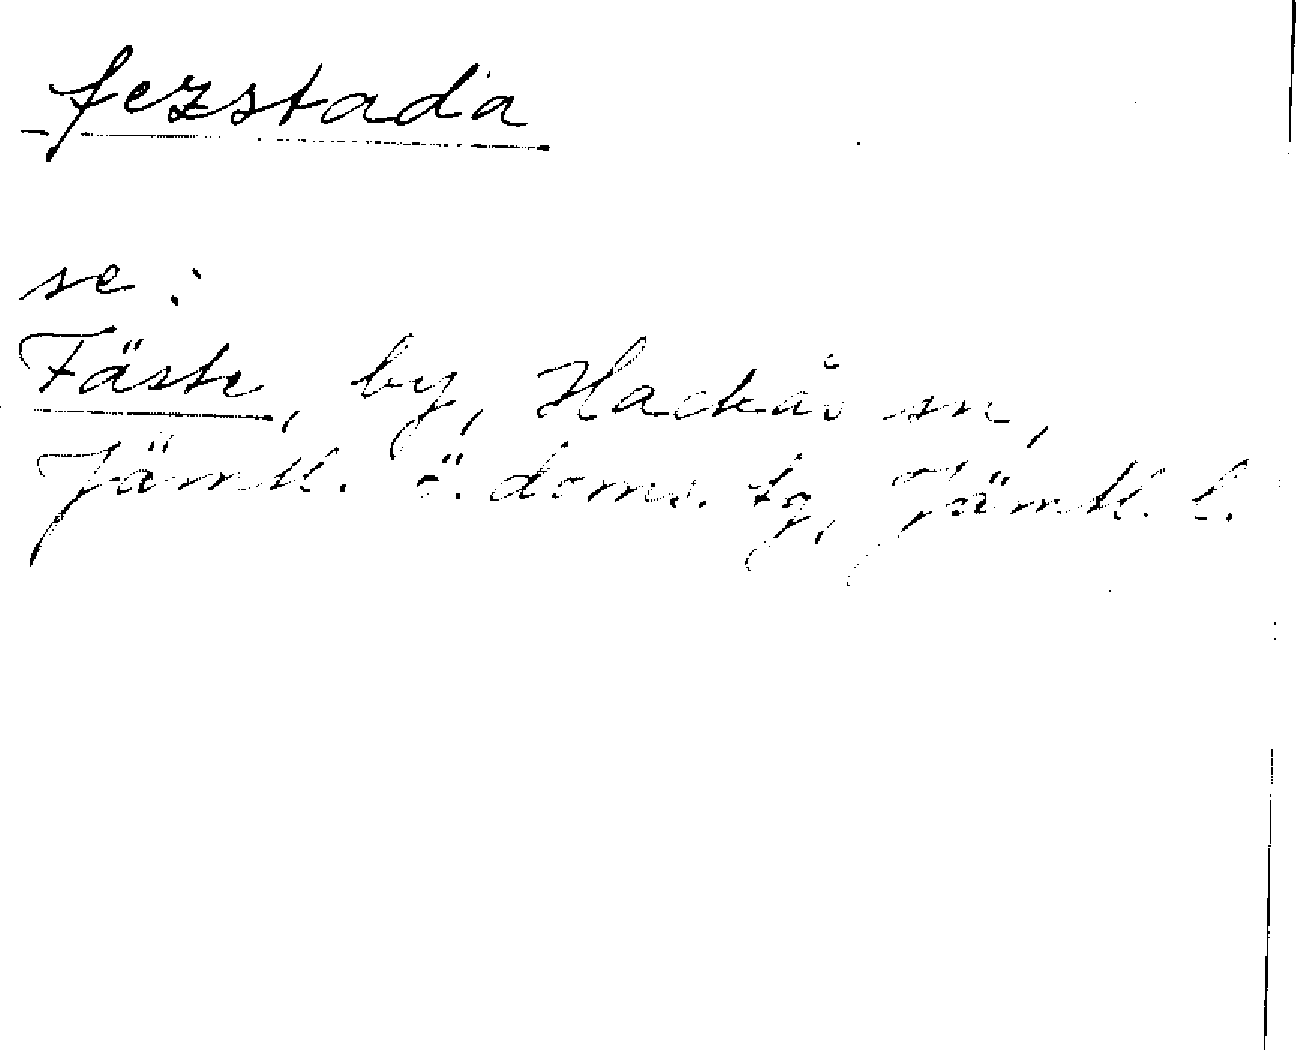 fezstada
se :
Fäste, by, Hackås sn,
Jämtl. ö. doms. tg, Jämtl. l.